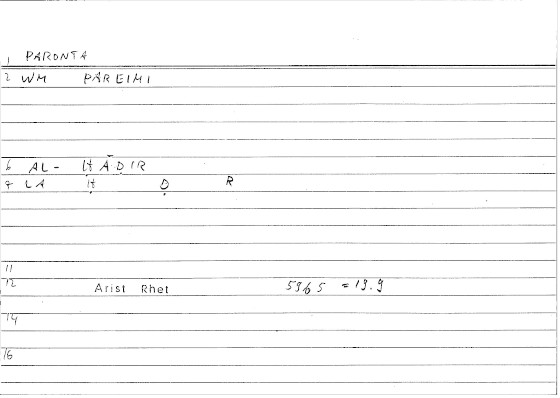 1 PARONTA
2 WM PAREIMI
6 AL- ḤĀḌIR
7 LA Ḥ Ḍ R
11
12 Arist Rhet 5365 = 13.9
14
16